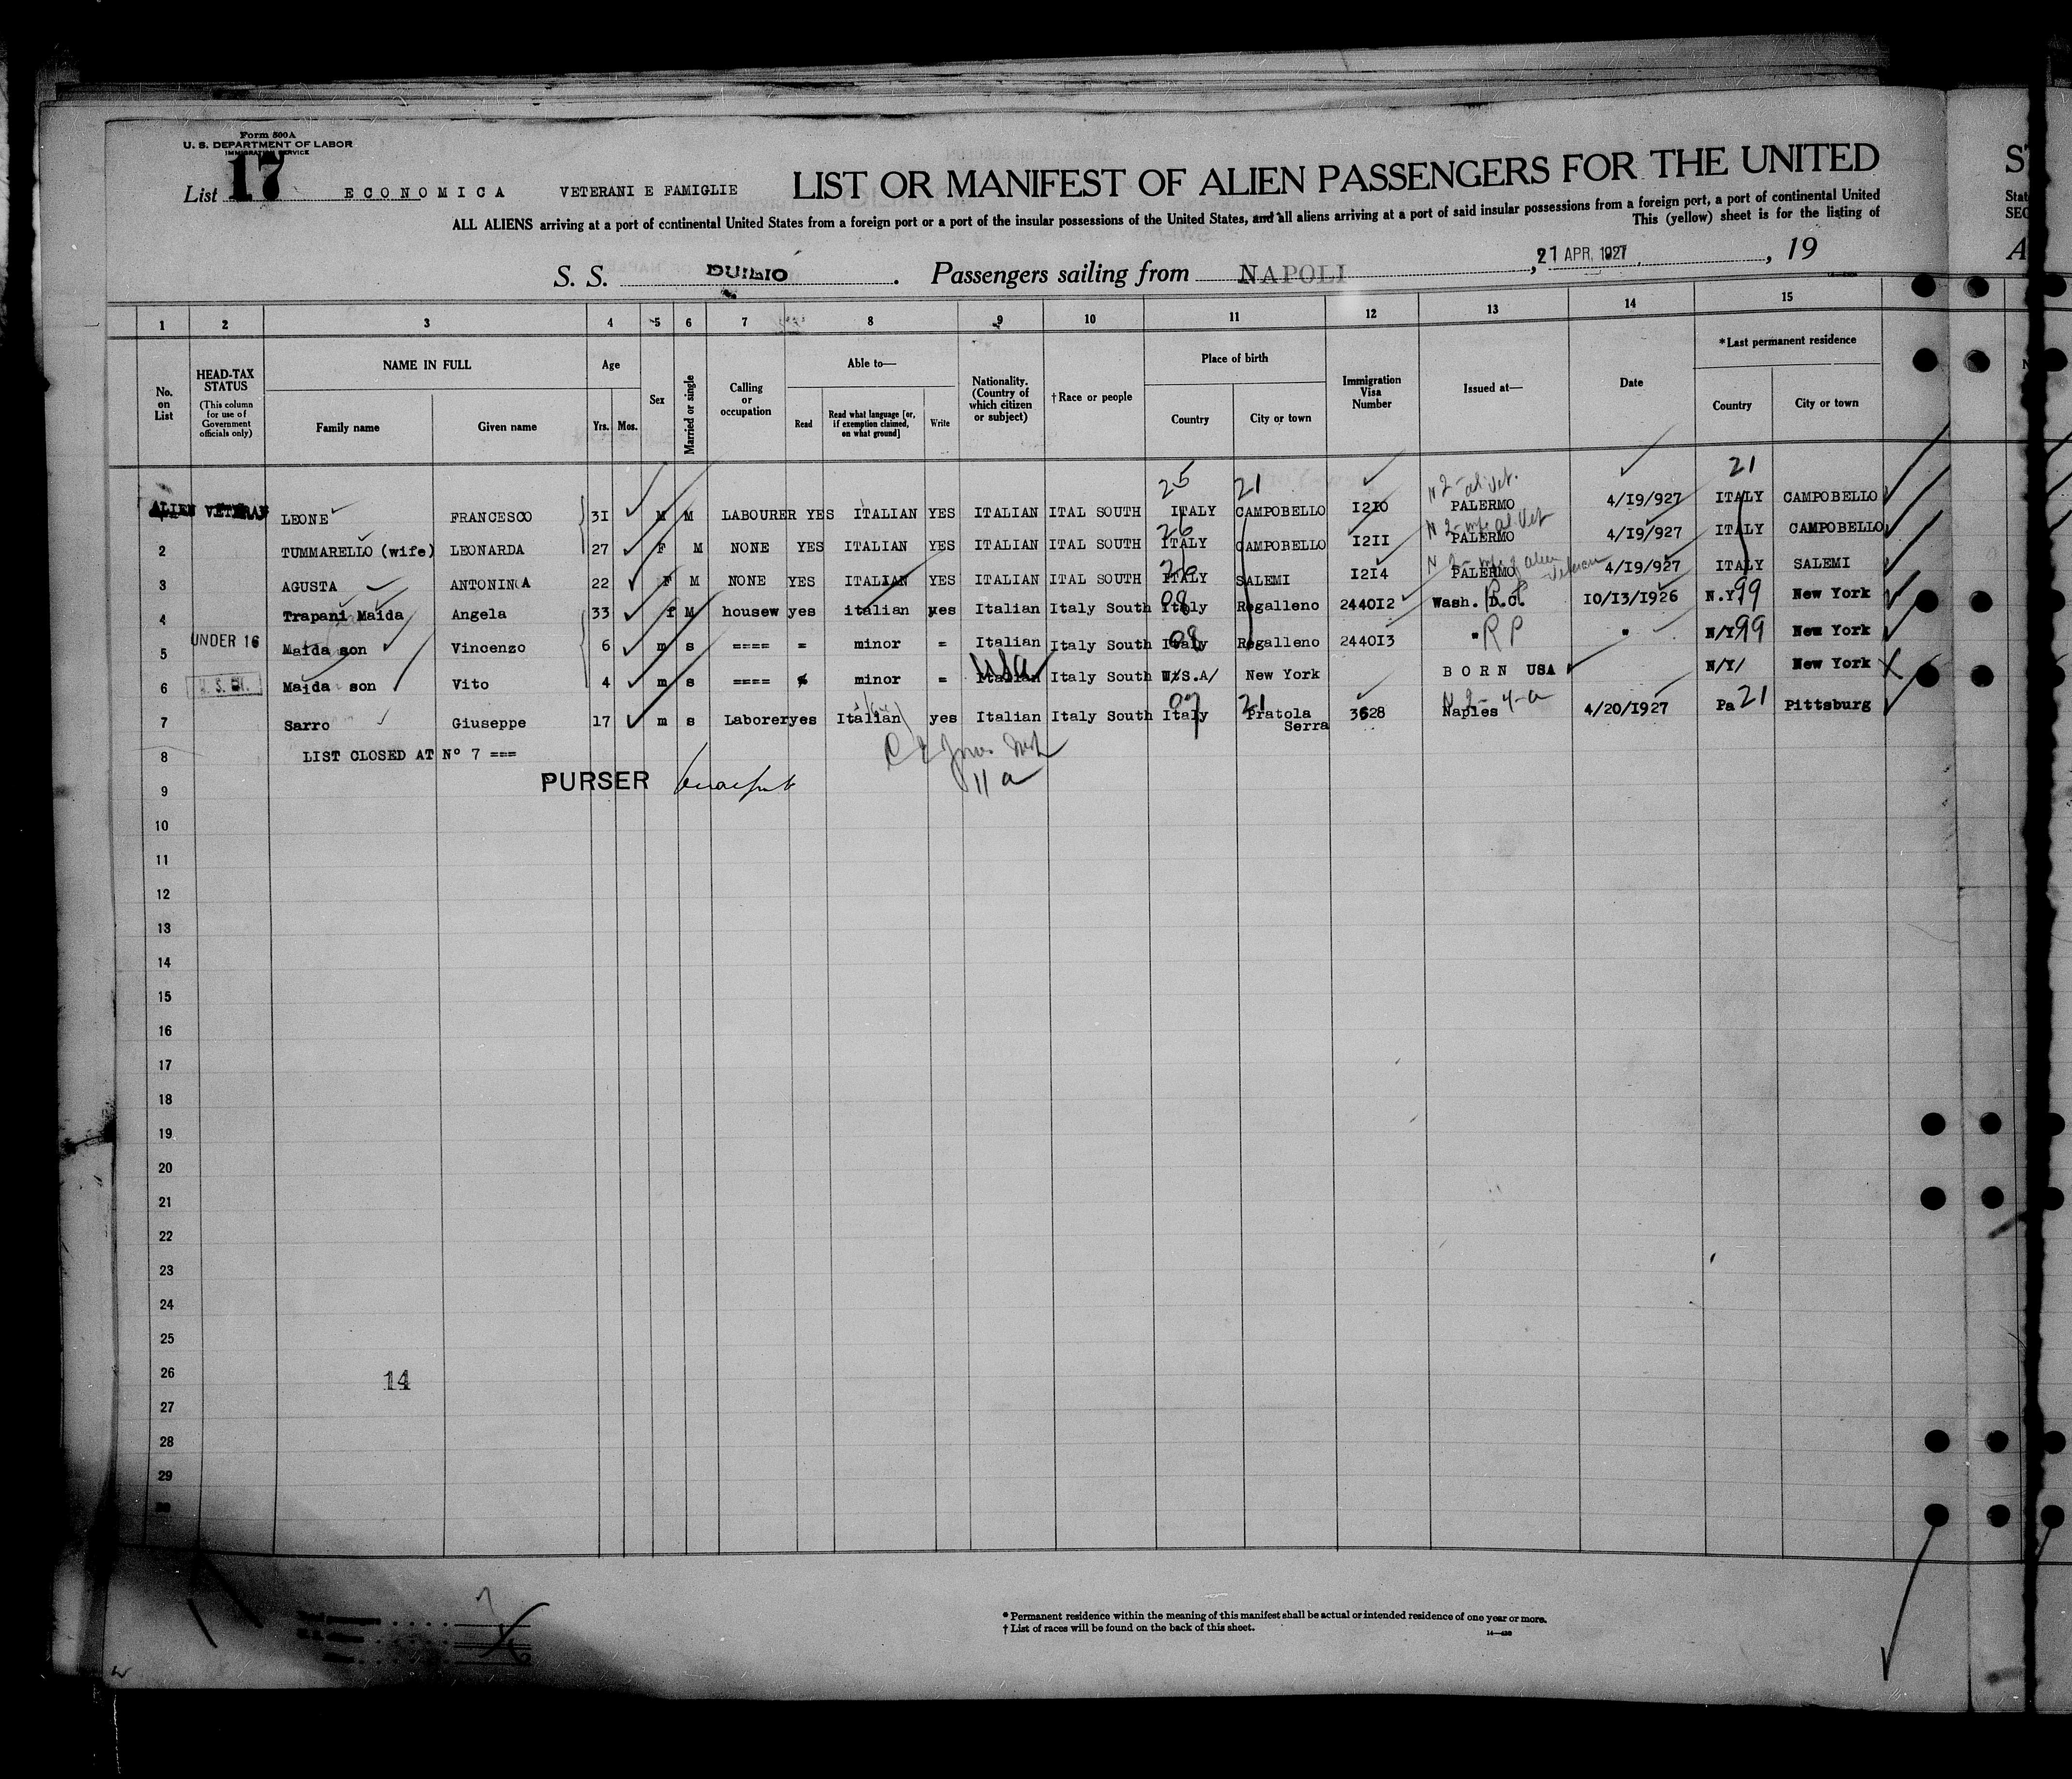 Form 500 A
U. S. DEPARTMENT OF LABOR
IMMIGRATION SERVICE
List 17 ECONOMICA VETERANI E FAMIGLIE LIST OR MANIFEST OF ALIEN PASSENGERS FOR THE UNITED
ALL ALIENS arriving at a port of continental United States from a foreign port or a port of the insular possessions of the United States, and all aliens arriving at a port of said insular possessions from a foreign port, a port of continental United
This (yellow) sheet is for the listing of
S. S. DUILIO. Passengers sailing from NAPOLI, 21 APR. 1927, 19
1 2 3 4 5 6 7 8 9 10 11 12 13 14 15
No. on List HEAD-TAX STATUS (This column for use of Government officials only) NAME IN FULL Family name Given name Age Yrs. Mos. Sex Married or single Calling or occupation Able to— Read Read what language [or, if exemption claimed, on what ground] Write Nationality. (Country of which citizen or subject) †Race or people Place of birth Country City or town Immigration Visa Number Issued at— Date *Last permanent residence Country City or town
25 21 21
ALIEN VETERAN LEONE FRANCESCO 31 M M LABOURER YES ITALIAN YES ITALIAN ITAL SOUTH ITALY CAMPOBELLO I2I0 PALERMO 4/I9/927 ITALY CAMPOBELLO
2 TUMMARELLO (wife) LEONARDA 27 F M NONE YES ITALIAN YES ITALIAN ITAL SOUTH 26 ITALY CAMPOBELLO I2II PALERMO 4/I9/927 ITALY CAMPOBELLO
3 AGUSTA ANTONINA 22 F M NONE YES ITALIAN YES ITALIAN ITAL SOUTH 26 ITALY SALEMI I2I4 PALERMO 4/I9/927 ITALY SALEMI
4 Trapani Maida Angela 33 f M housew yes italian yes Italian Italy South 08 Italy Regalleno 244012 Wash. D.C. RP 10/13/1926 N.Y 99 New York
5 UNDER 16 Maida son Vincenzo 6 m s ==== = minor = Italian Italy South 08 Italy Regalleno 244013 " RP " N/Y 99 New York
6 Maida son Vito 4 m s ==== minor = Italian USA Italy South U/S.A/ New York BORN USA N/Y/ New York
7 Sarro Giuseppe 17 m s Laborer yes Italian yes Italian Italy South 09 Italy 21 Pratola Serra 3628 Naples 4/20/1927 Pa 21 Pittsburg
8 LIST CLOSED AT N° 7 ===
9 PURSER 11 a
10
11
12
13
14
15
16
17
18
19
20
21
22
23
24
25
26 14
27
28
29
* Permanent residence within the meaning of this manifest shall be actual or intended residence of one year or more.
† List of races will be found on the back of this sheet.